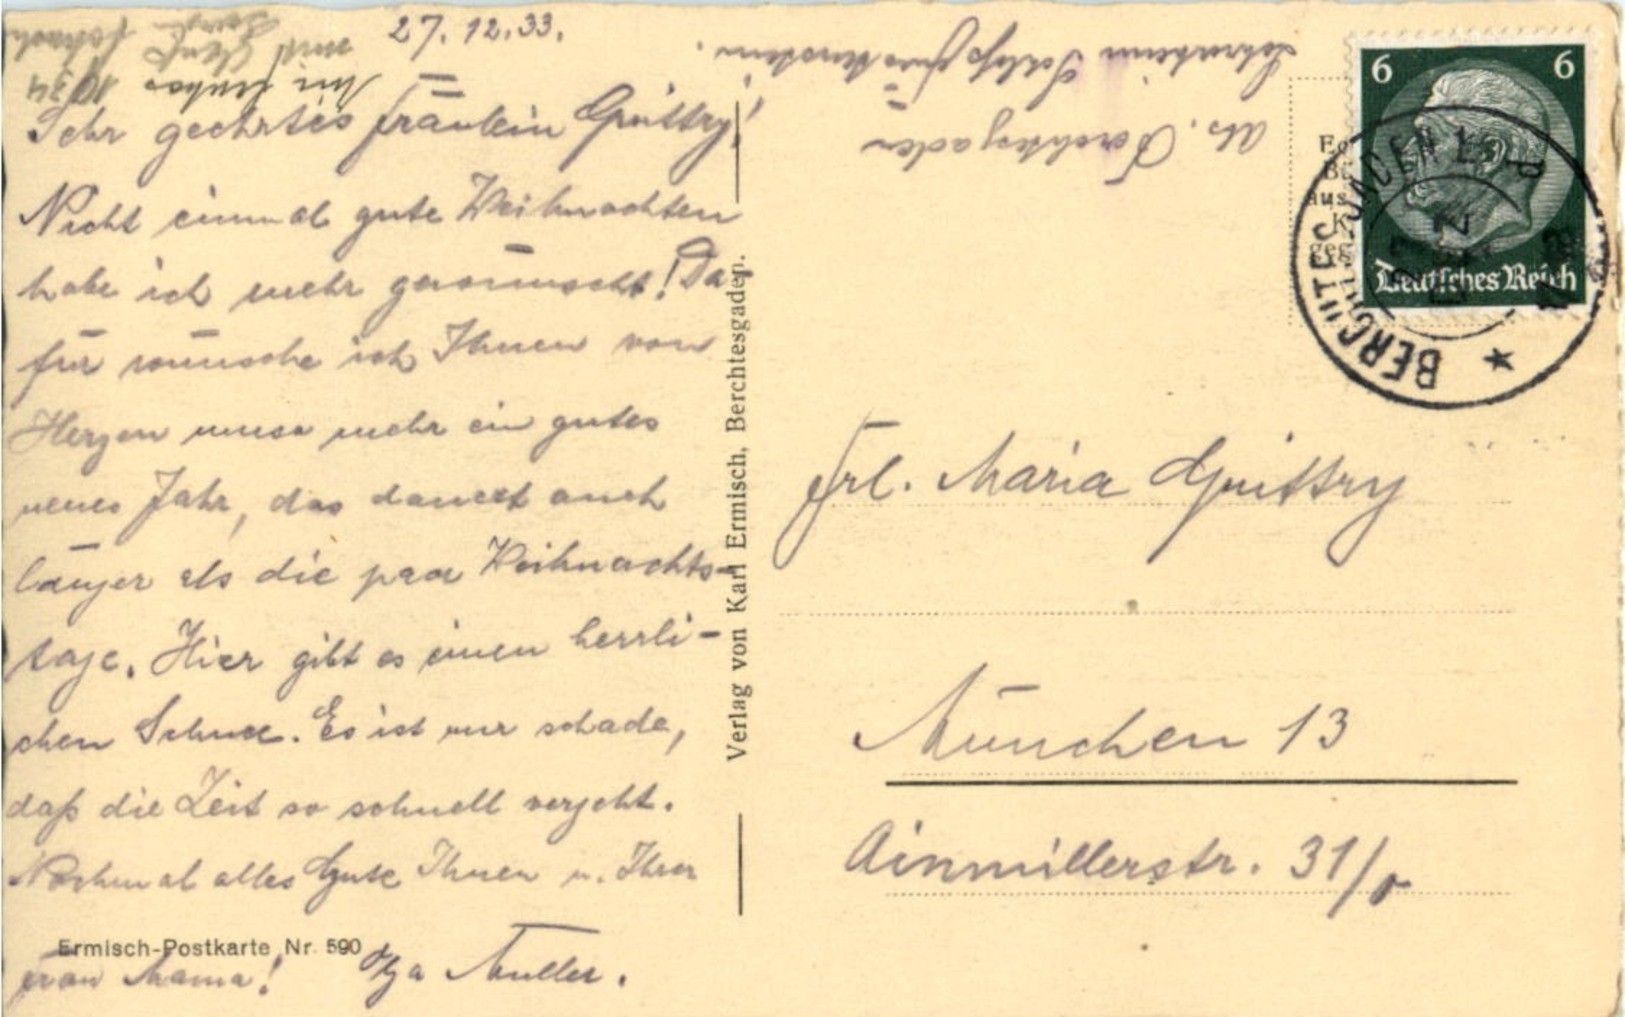 27. 12. 33.
Sehr geehrtes Fräulein Guittry!
Nicht einmal gute Weihnachten
habe ich mehr gewünscht! Da
für wünsche ich Ihnen von
Herzen umso mehr ein gutes
neues Jahr, das dauert auch
länger als die paar Weihnachts-
tage. Hier gibt es einen herrli-
chen Schnee. Es ist nur schade,
daß die Zeit so schnell vergeht.
Nochmal alles Gute Ihnen u. Ihrer
Frau Mama! Müller.
Ermisch-Postkarte Nr. 590
Verlag von Karl Ermisch, Berchtesgaden.
Abs. Berchtesgaden
Schloß Fürstenstein
6 6
Deutsches Reich
BERCHTESGADEN
Frl. Maria Guittry
München 13
Ainmillerstr. 31/